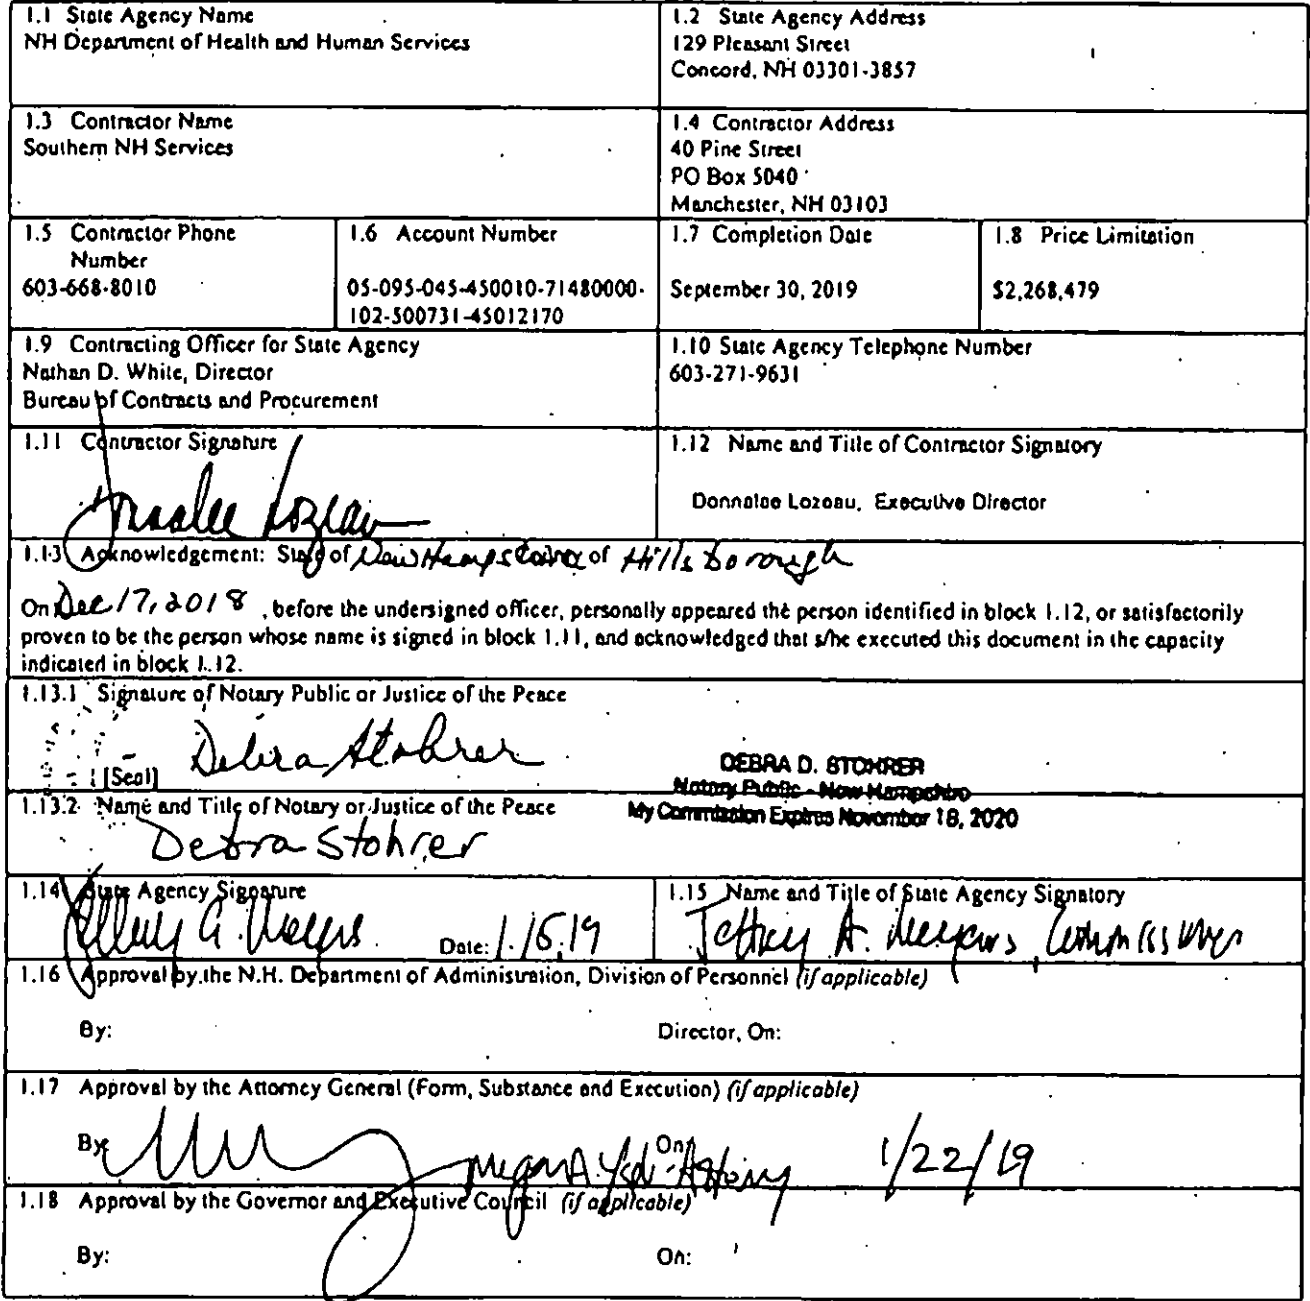 1.1 State Agency Name
NH Department of Health and Human Services
1.2 State Agency Address
129 Pleasant Street
Concord, NH 03301-3857
1.3 Contractor Name
Southern NH Services
1.4 Contractor Address
40 Pine Street
PO Box 5040
Manchester, NH 03103
1.5 Contractor Phone
Number
603-668-8010
1.6 Account Number
05-095-045-450010-71480000-
102-500731-45012170
1.7 Completion Date
September 30, 2019
1.8 Price Limitation
$2,268,479
1.9 Contracting Officer for State Agency
Nathan D. White, Director
Bureau of Contracts and Procurement
1.10 State Agency Telephone Number
603-271-9631
1.11 Contractor Signature
Donnalee Lozeau
1.12 Name and Title of Contractor Signatory
Donnalee Lozeau, Executive Director
1.13 Acknowledgement: State of New Hampshire of Hillsborough
On Dec 17, 2018, before the undersigned officer, personally appeared the person identified in block 1.12, or satisfactorily
proven to be the person whose name is signed in block 1.11, and acknowledged that s/he executed this document in the capacity
indicated in block 1.12.
1.13.1 Signature of Notary Public or Justice of the Peace
Debra Stohrer
[Seal]
DEBRA D. STOHRER
Notary Public - New Hampshire
My Commission Expires November 18, 2020
1.13.2 Name and Title of Notary or Justice of the Peace
Debra Stohrer
1.14 State Agency Signature
Date: 1.15.19
1.15 Name and Title of State Agency Signatory
Jeffrey A. Meyers, Commissioner
1.16 Approval by the N.H. Department of Administration, Division of Personnel (if applicable)
By: Director, On:
1.17 Approval by the Attorney General (Form, Substance and Execution) (if applicable)
By: On: 1/22/19
1.18 Approval by the Governor and Executive Council (if applicable)
By: On: